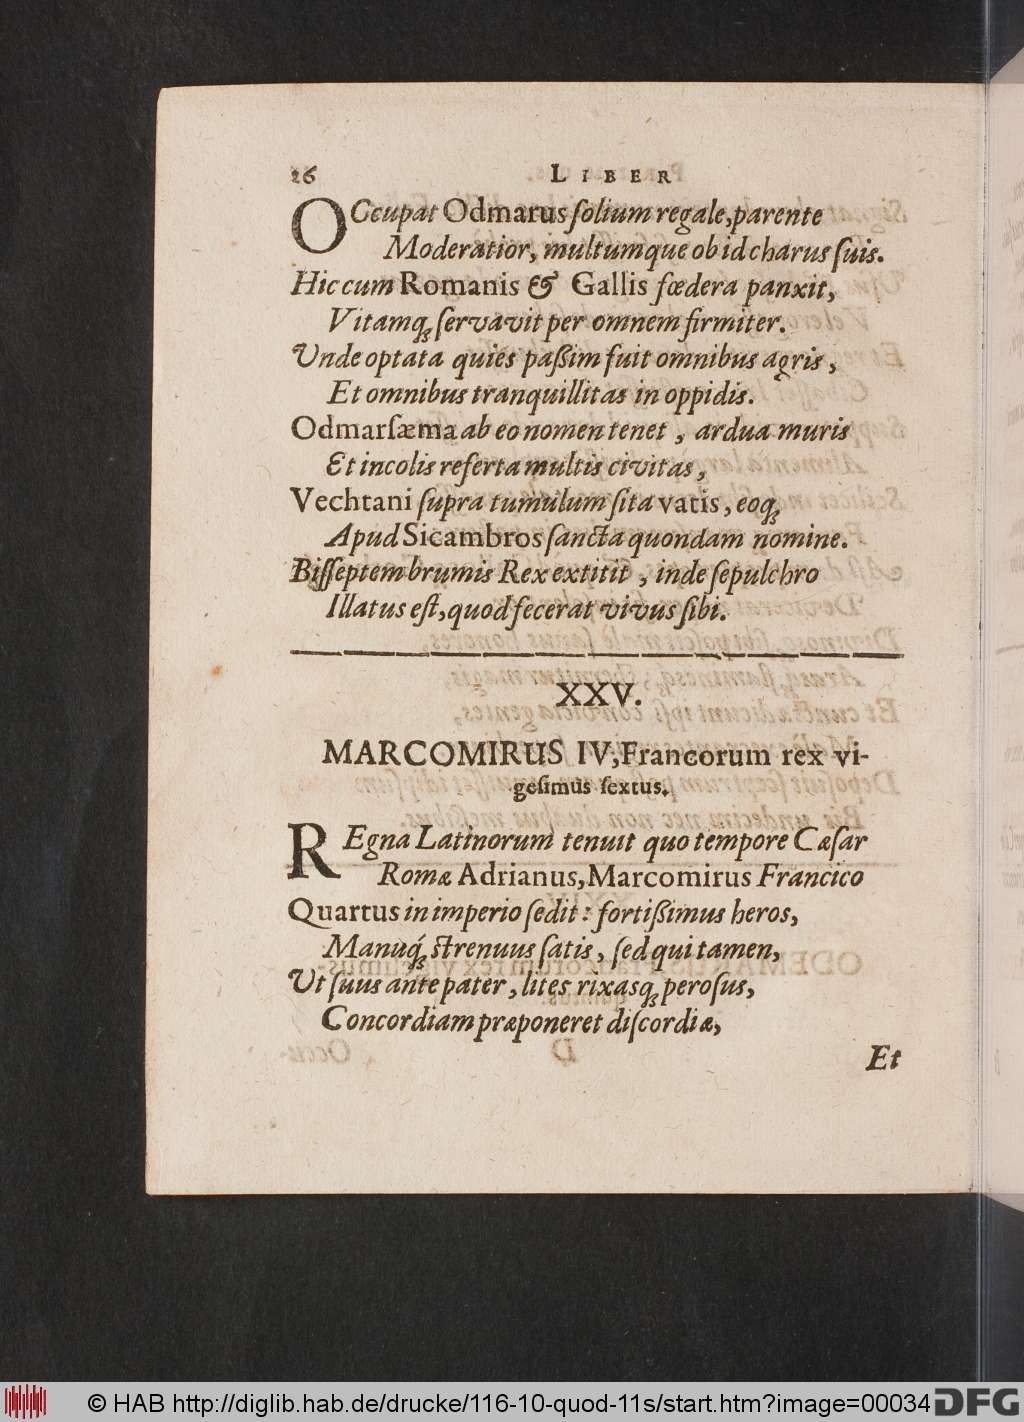 26 LIBER
OCcupat Odmarus ſolium regale, parente
Moderatior, multumque ob id charus ſuis.
Hic cum Romanis & Gallis fœdera panxit,
Vitamq́ꝫ ſervavit per omnem firmiter.
Unde optata quies paßim fuit omnibus agris,
Et omnibus tranquillitas in oppidis.
Odmarſæma ab eo nomen tenet, ardua muris
Et incolis referta multis civitas,
Vechtani ſupra tumulum ſita vatis, eoqꝫ
Apud Sicambros ſancta quondam nomine.
Biſſeptem brumis Rex extitit, inde ſepulchro
Illatus eſt, quod fecerat vivus ſibi.
XXV.
MARCOMIRUS IV, Francorum rex vi-
geſimus ſextus.
REgna Latinorum tenuit quo tempore Cæſar
Romæ Adrianus, Marcomirus Francico
Quartus in imperio ſedit: fortißimus heros,
Manuq́ꝫ ſtrenuus ſatis, ſed qui tamen,
Ut ſuus ante pater, lites rixasqꝫ peroſus,
Concordiam præponeret diſcordiæ,
Et
© HAB http://diglib.hab.de/drucke/116-10-quod-11s/start.htm?image=00034
DFG